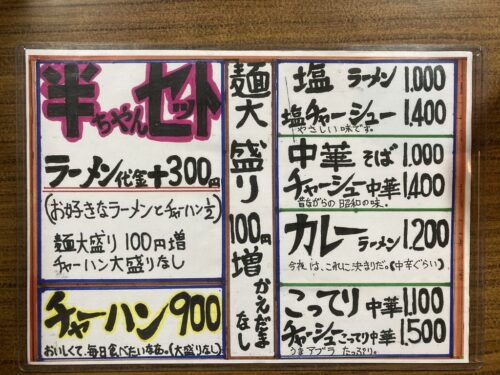 半ちゃんセット
ラーメン代金+300円
(お好きなラーメンとチャーハン½)
麺大盛り100円増
チャーハン大盛りなし
チャーハン900
おいしくて、毎日食べたいなあ。(大盛りなし)
麺大盛り100円増
かえだまなし
塩ラーメン1,000
塩チャーシュー1,400
やさしい味です。
中華そば1,000
チャーシュー中華1,400
昔ながらの昭和の味。
カレーラーメン1,200
今夜は、これに決まりだ。(中辛ぐらい)
こってり中華1,100
チャーシューこってり中華1,500
うまアブラたっぷり。